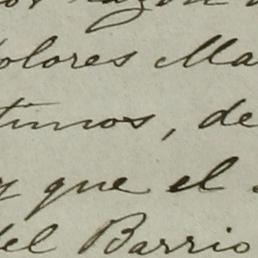 razón
olores Ma
timos, de
y que el
del Barrio